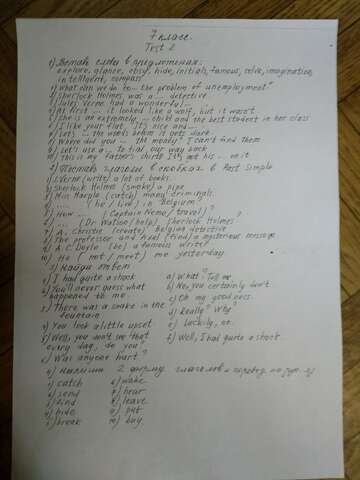 7 класс.
Test 2
1) Вставь слова в предложения:
explore, glance, cosy, hide, initials, famous, solve, imagination,
intelligent, compass
1) What can we do to ... the problem of unemployment?
2) Sherlock Holmes was a ... detective
3) Jules Verne had a wonderful ...
4) At first ... it looked like a wolf, but it wasn't
5) She is an extremely ... child and the best student in her class
6) I like your flat. It's nice and ...
7) Let's ... the woods before it gets dark.
8) Where did you ... the money? I can't find them
9) Let's use a ... to find our way back
10) This is my father's shirt. It's got his ... on it
2) Поставь глаголы в скобках в Past Simple
1. J. Verne (write) a lot of books.
2) Sherlock Holmes (smoke) a pipe
3) Miss Marple (catch) many criminals.
4) .... (he / live) in Belgium?
5) How .... (Captain Nemo / travel)?
6) ... (Dr Watson / help) Sherlock Holmes?
7) A. Christie (create) Belgian detective
8) The professor and Axel (find) a mysterious message
9) A. C. Doyle (be) a famous writer
10) He (not / meet) me yesterday.
3) Найди ответ
1) I had quite a shock
2) You'll never guess what
happened to me.
3) There was a snake in the
fountain
4) You look a little upset
5) Well, you don't see that
every day, do you?
6) Was anyone hurt?
a) What? Tell me.
b) No, you certainly don't
c) Oh my goodness.
d) Really? Why?
e) Luckily, no.
f) Well, I had quite a shock
4) Напиши 2 форму глаголов и перевод на рус. яз
1) catch
2) send
3) find
4) hide
5) break
6) wake
7) hear
8) leave
9) put
10) buy